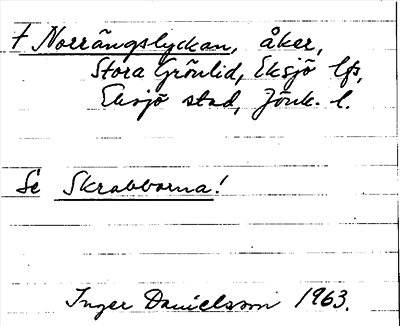 † Norrängslyckan, åker,
Stora Grönlid, Eksjö lfs,
Eksjö stad, Jönk. l.
Se Skrabbarna!
Inger Danielsson 1963.